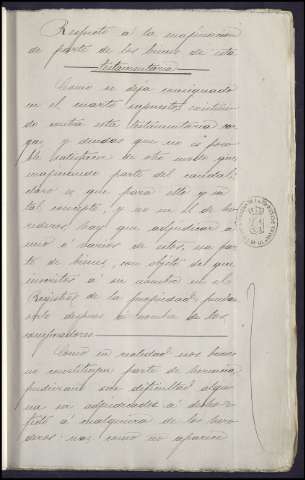 Respecto á la enagenación
de parte de los bienes de esta
testamentaria
Como se deja consignado
en el cuarto supuesto, existien
do contra esta testamentaria car
gas, y deudas que no es posi
ble satisfacer de otro modo que
enagenando parte del caudal;
claro es que para ello y en
tal concepto, y no en el de he
rederos, hay que adjudicar á
uno ó varios de estos, esa par
te de bienes, con objeto de que
inscritos á su nombre en el
Registro de la propiedad, puedan
serlo después á nombre de los
compradores
Como en realidad esos bienes
no constituyen parte de herencia,
pudieran sin dificultad algu
na ser adjudicados á
á cualquiera de los here
deros; mas como no aparece